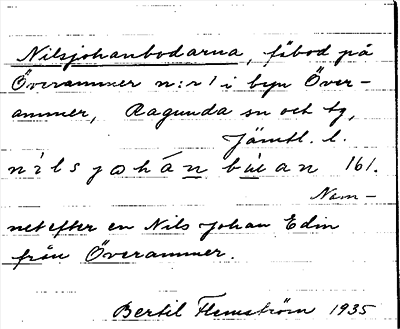 Nilsjohanbodarna, fäbod på
Överammer n:r 1 i byn Över-
ammer, Ragunda sn och tg,
Jämtl. l.
nilsjohán an 161.
Nam-
net efter en Nils Johan Edin
från Överammer.
Bertil Flemström 1935